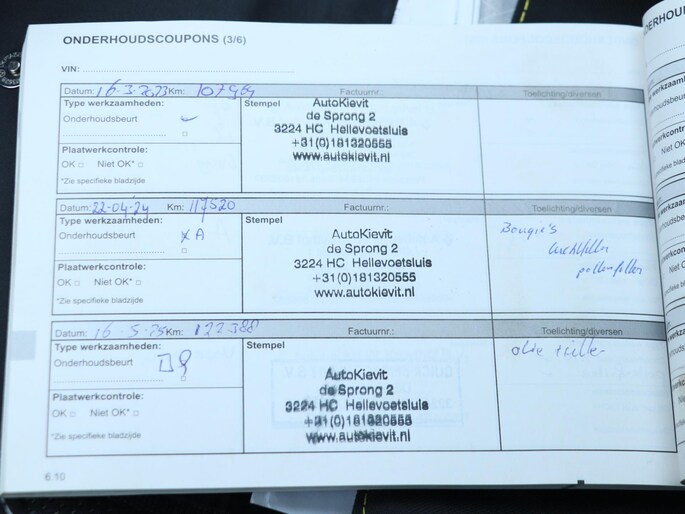 ONDERHOUDSCOUPONS (3/6)
VIN:
Datum: 16-3-2023 Km: 107969 Factuurnr.: Toelichting/diversen
Type werkzaamheden: Stempel
Onderhoudsbeurt
Plaatwerkcontrole:
OK □ Niet OK* □
*Zie specifieke bladzijde
AutoKievit
de Sprong 2
3224 HC Hellevoetsluis
+31(0)181320555
www.autokievit.nl
Datum: 22-04-24 Km: 117520 Factuurnr.: Toelichting/diversen
Type werkzaamheden: Stempel
Onderhoudsbeurt X A
Plaatwerkcontrole:
OK □ Niet OK* □
*Zie specifieke bladzijde
AutoKievit
de Sprong 2
3224 HC Hellevoetsluis
+31(0)181320555
www.autokievit.nl
Bougie's
luchtfilter
pollenfilter
Datum: 16-5-25 Km: 122388 Factuurnr.: Toelichting/diversen
Type werkzaamheden: Stempel
Onderhoudsbeurt
Plaatwerkcontrole:
OK □ Niet OK* □
*Zie specifieke bladzijde
AutoKievit
de Sprong 2
3224 HC Hellevoetsluis
+31(0)181320555
www.autokievit.nl
olie filter
6.10